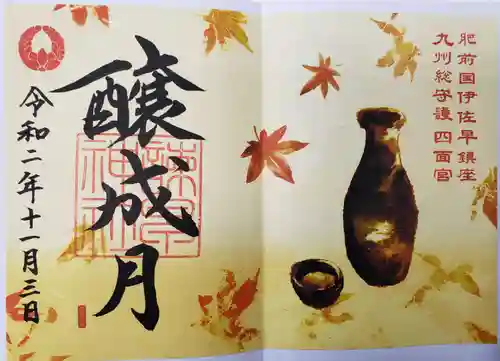 肥前国伊佐早鎮座
九州総守護 四面宮
醸成月
諫早神社
令和二年十一月三日